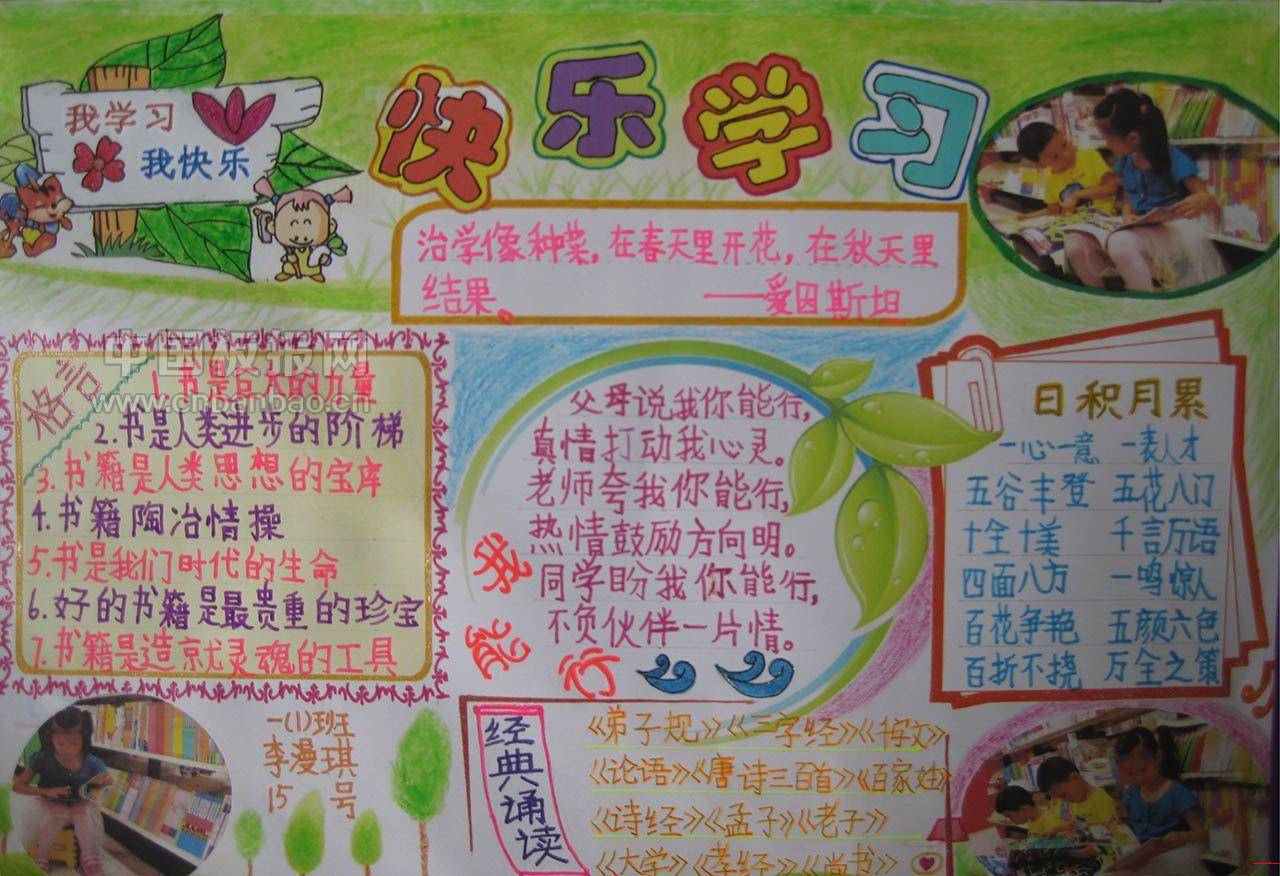 我学习
我快乐
快乐学习
治学像种菜，在春天里开花，在秋天里
结果。 ——爱因斯坦
中国板报网
www.cnbanbao.cn
格言
1.书是巨大的力量
2.书是人类进步的阶梯
3.书籍是人类思想的宝库
4.书籍陶冶情操
5.书是我们时代的生命
6.好的书籍是最贵重的珍宝
7.书籍是造就灵魂的工具
父母说我你能行,
真情打动我心灵。
老师夸我你能行,
热情鼓励方向明。
同学盼我你能行,
不负伙伴一片情。
我能行
日积月累
一心一意 一表人才
五谷丰登 五花八门
十全十美 千言万语
四面八方 一鸣惊人
百花争艳 五颜六色
百折不挠 万全之策
一(1)班
李漫琪
15号
经典诵读
《弟子规》《三字经》《千字文》
《论语》《唐诗三百首》《百家姓》
《诗经》《孟子》《老子》
《大学》《孝经》《尚书》